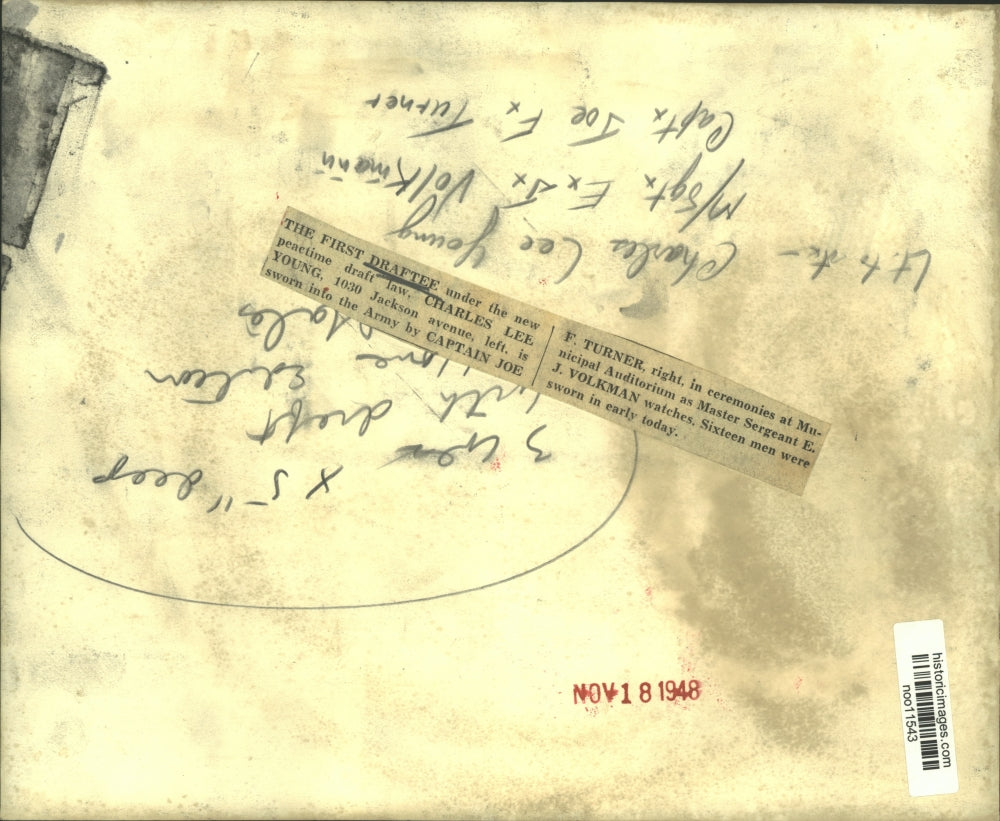 Lt. to rt. —
Charles Lee Young
M/Sgtx Ex Jx Volkmann
Captx Joe Fx Turner
THE FIRST DRAFTEE under the new
peacetime draft law, CHARLES LEE
YOUNG, 1030 Jackson avenue, left, is
sworn into the Army by CAPTAIN JOE
F. TURNER, right, in ceremonies at Mu-
nicipal Auditorium as Master Sergeant E.
J. VOLKMAN watches. Sixteen men were
sworn in early today.
x 5" deep
3
with draft
NOV 18 1948
historicimages.com
noo11543